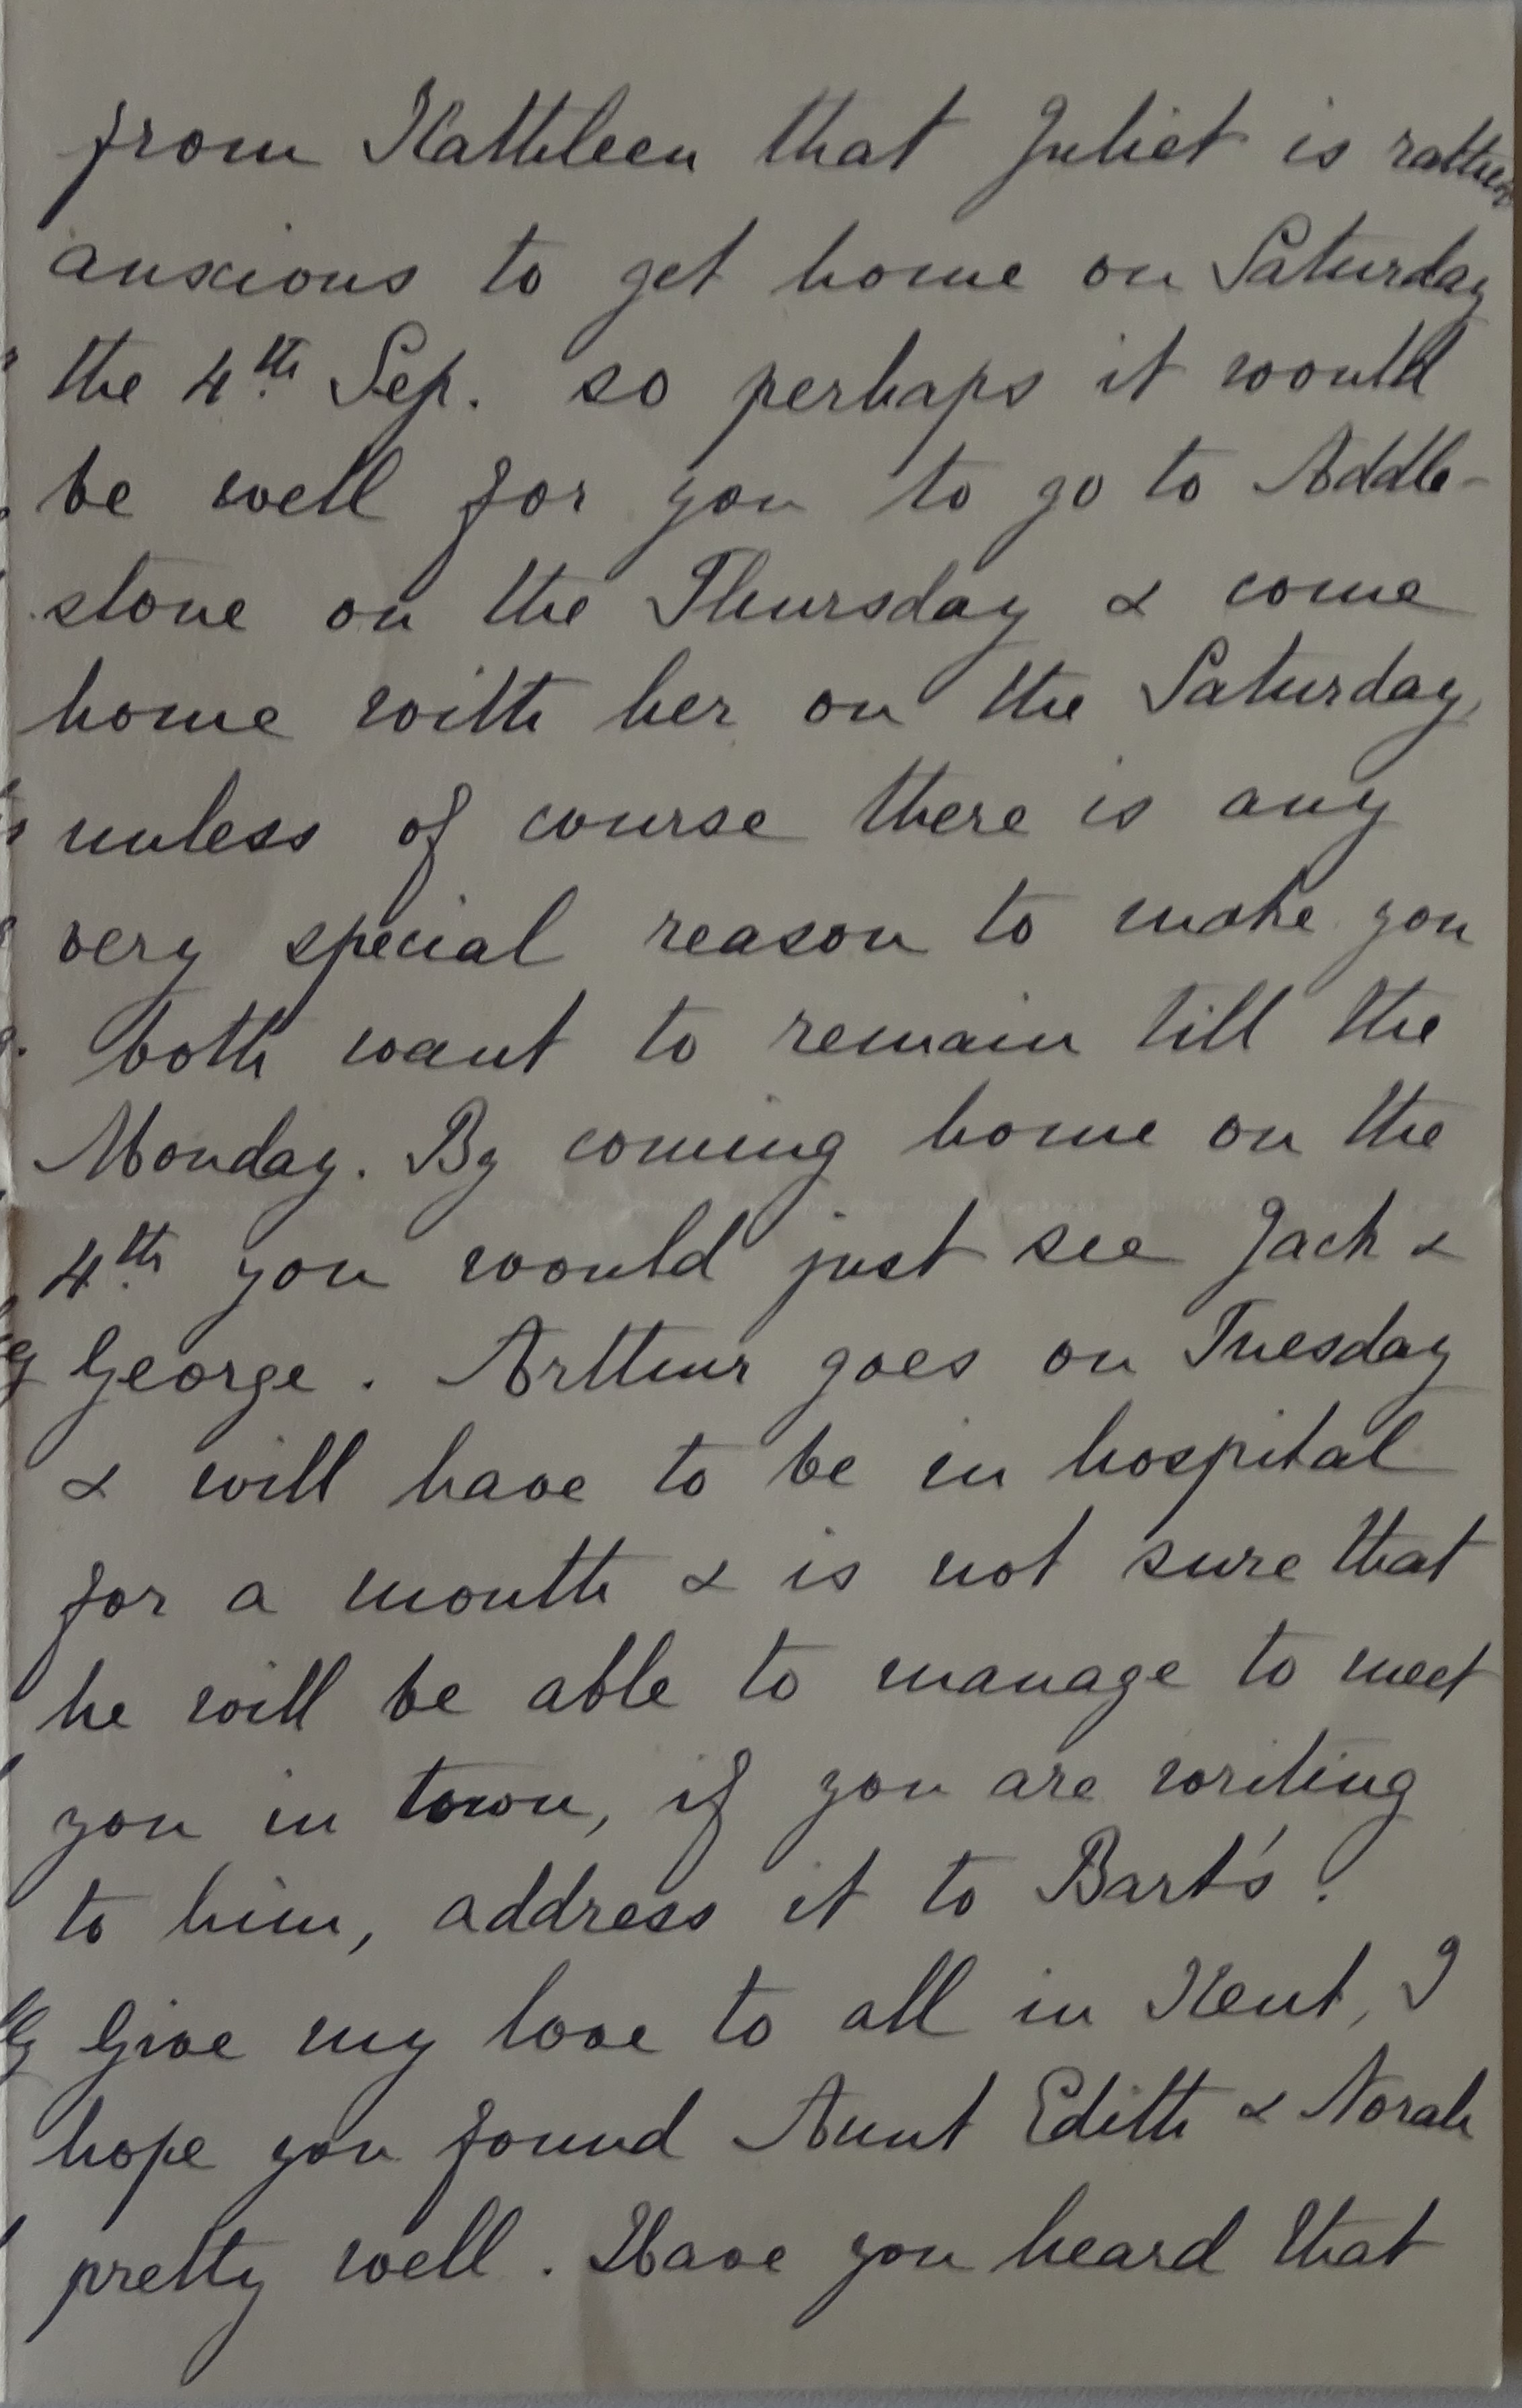 from Kathleen that Juliet is rather
anxious to get home on Saturday
the 4th Sep. so perhaps it would
be well for you to go to Addle-
stone on the Thursday & come
home with her on the Saturday,
unless of course there is any
very special reason to make you
both want to remain till the
Monday. By coming home on the
4th you would just see Jack &
George. Arthur goes on Tuesday
& will have to be in hospital
for a month & is not sure that
he will be able to manage to meet
you in town, if you are writing
to him, address it to Bart's!
Give my love to all in Kent, I
hope you found Aunt Edith & Norah
pretty well. Have you heard that